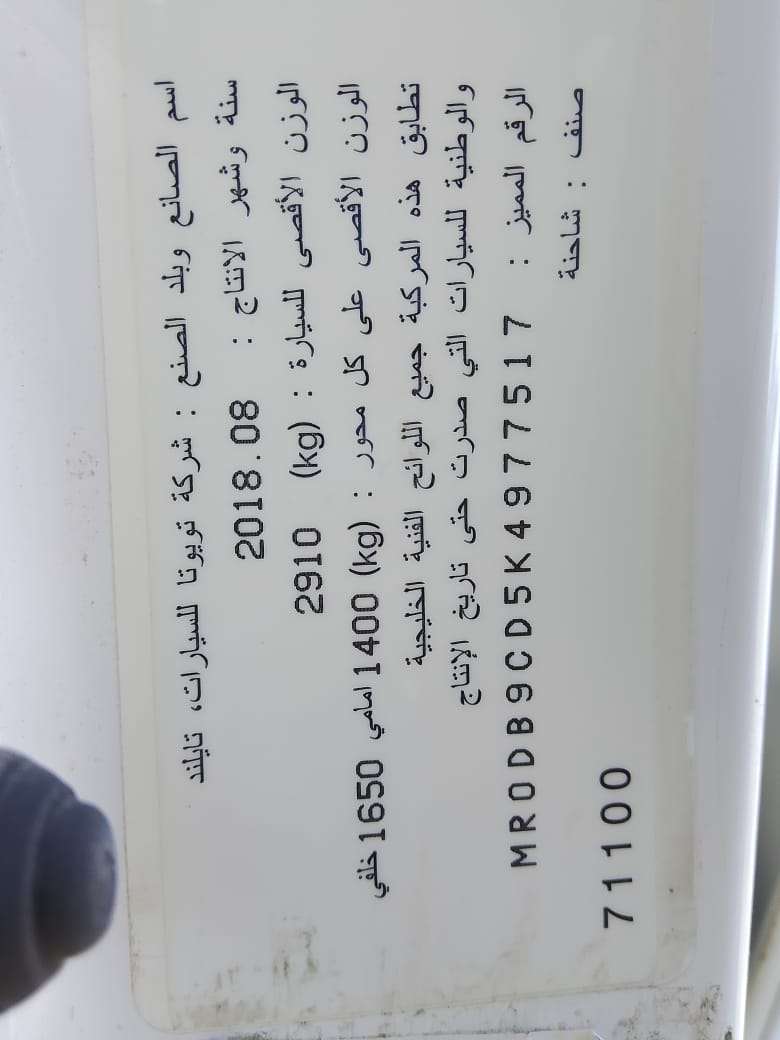 اسم الصانع وبلد الصنع : شركة تويوتا للسيارات، تايلند
سنة وشهر الانتاج : 2018.08
الوزن الأقصى للسيارة : (kg) 2910
الوزن الأقصى على كل محور : (kg) 1400 امامي 1650 خلفي
تطابق هذه المركبة جميع اللوائح الفنية الخليجية
والوطنية للسيارات التي صدرت حتى تاريخ الإنتاج
الرقم المميز : MR0DB9CD5K4977517
صنف : شاحنة
71100